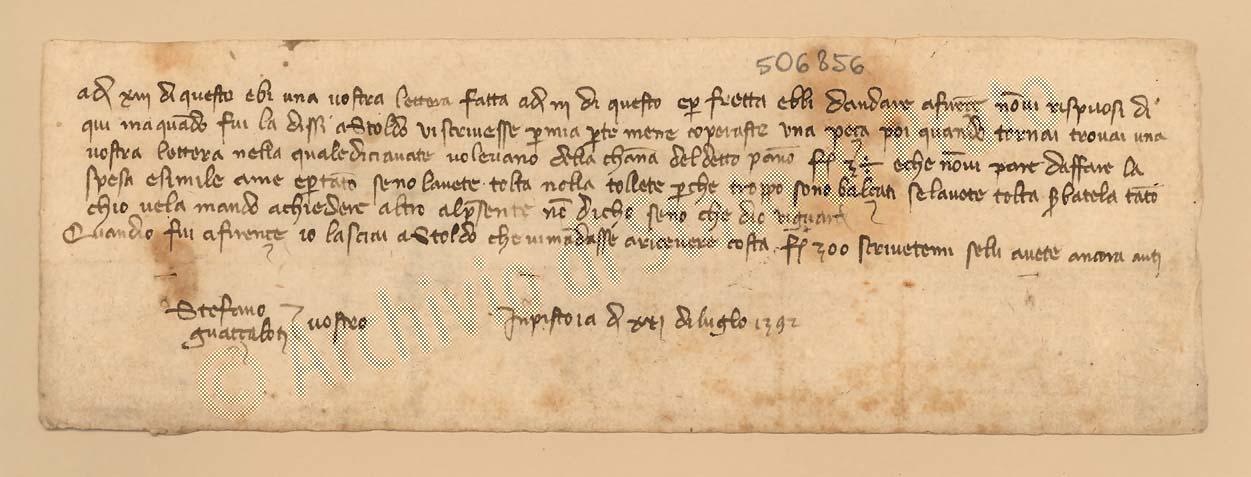 506856
adì xiii di questo ebi una vostra lettera fatta adì iii di questo e p fretta ebbi dandare afirẽçe nõvi rispuosi di
qui ma quãdo fui la dissi a Stoldo vi scrivesse p mia pte mene coperaste una peça poi quando tornai trovai una
vostra lettera nella quale diciavate volevano della chãna del detto pãno ff 3 e che nõvi pare daffare la
spesa e simile ame e p tãto se no lavete tolta nolla tollete p che troppo sono se lavete tolta s batela tãto
chio vela mando achiedere altro al psente nõ dicho se no che dio vi guardi
Quando fui afirençe io lasciai a Stoldo che vi mãdasse a ricevere costa ff 300 scrivetemi selli avete ancora auti
Stefano
guaççaloti vostro
In pistoia dì xxi di luglo 1392
© Archivio di